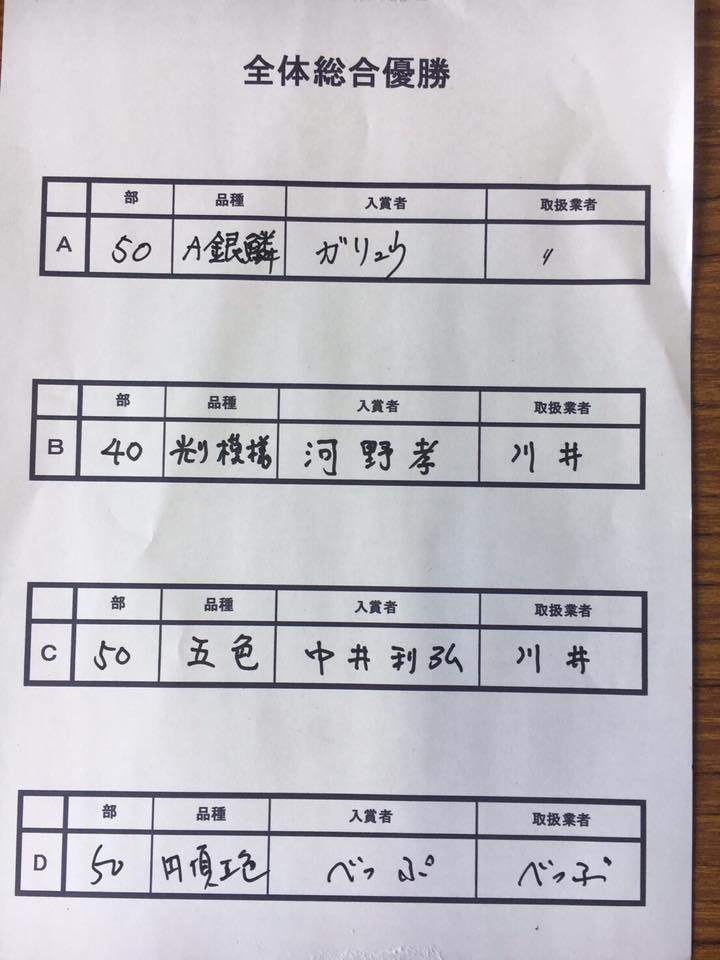 全体総合優勝
部 品種 入賞者 取扱業者
A 50 A銀鱗 ガリュウ 〃
部 品種 入賞者 取扱業者
B 40 光り模様 河野孝 川井
部 品種 入賞者 取扱業者
C 50 五色 中井利弘 川井
部 品種 入賞者 取扱業者
D 50 丹頂五色 べっぷ べっぷ